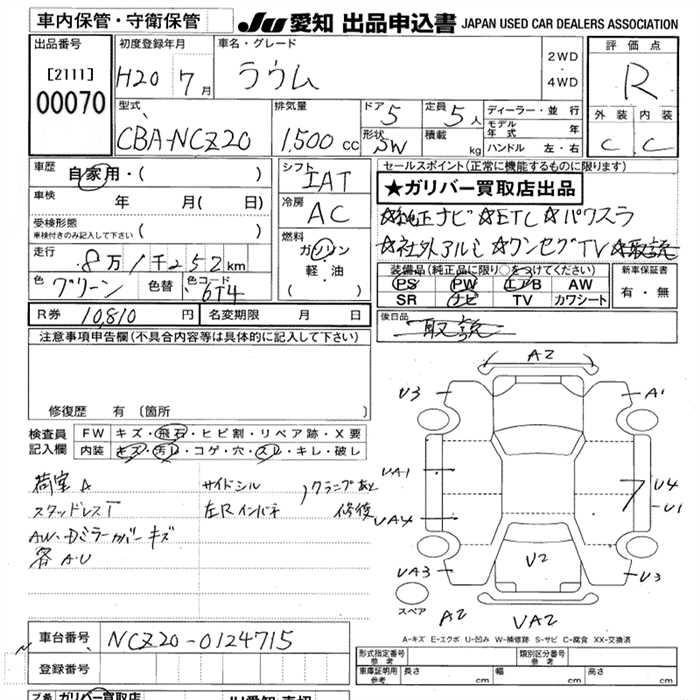 車内保管・守衛保管 JU愛知 出品申込書 JAPAN USED CAR DEALERS ASSOCIATION
出品番号 初度登録年月 車名・グレード 評価点
[2111] H20 7月 ラウム 2WD・4WD R
00070
型式 排気量 ドア 5 定員 5人 ディーラー・並行 外装 内装
CBA-NCZ20 1,500cc 形状 SW 積載 kg モデル年式 年 C C
ハンドル 左・右
車歴 自家用・( ) シフト IAT セールスポイント(正常に機能するものに限ります)
★ガリバー買取店出品
車検 年 月( 日) 冷房 AC
☆純正ナビ ☆ETC ☆パワスラ
受検形態 車検付きのみ記入して下さい ( )
☆社外アルミ ☆ワンセグTV ☆取説
走行 8万1千252km 燃料 ガソリン・軽油 ( )
装備品(純正品に限り○をつけてください) 新車保証書
色 グリーン 色替 色コード 6T4
PS PW エアB AW 有・無
SR ナビ TV カワシート
R券 10,810円 名変期限 月 日
後日品 取説
注意事項申告欄(不具合内容等は具体的に記入して下さい)
修復歴 有〔箇所 〕
検査員記入欄 FW キズ・飛石・ヒビ割・リペア跡・X要
内装 キズ・汚れ・コゲ・穴・スレ・キレ・破レ
荷室A サイドシル
スタッドレスT 左Rインパネ )クランプあと修復
AW・Dミラーカバーキズ
各A・U
A2
U3 A1
UA1 U4
UA4 U1
U2
UA3 U3
スペア A2 UA2
A-キズ E-エクボ U-凹み W-補修跡 S-サビ C-腐食 XX-交換済
車台番号 NCZ20-0124715
登録番号
形式指定番号 参考 類別区分番号 参考
車庫証明用 参考 長さ cm 幅 cm 高さ cm
ガリバー買取店 JU愛知